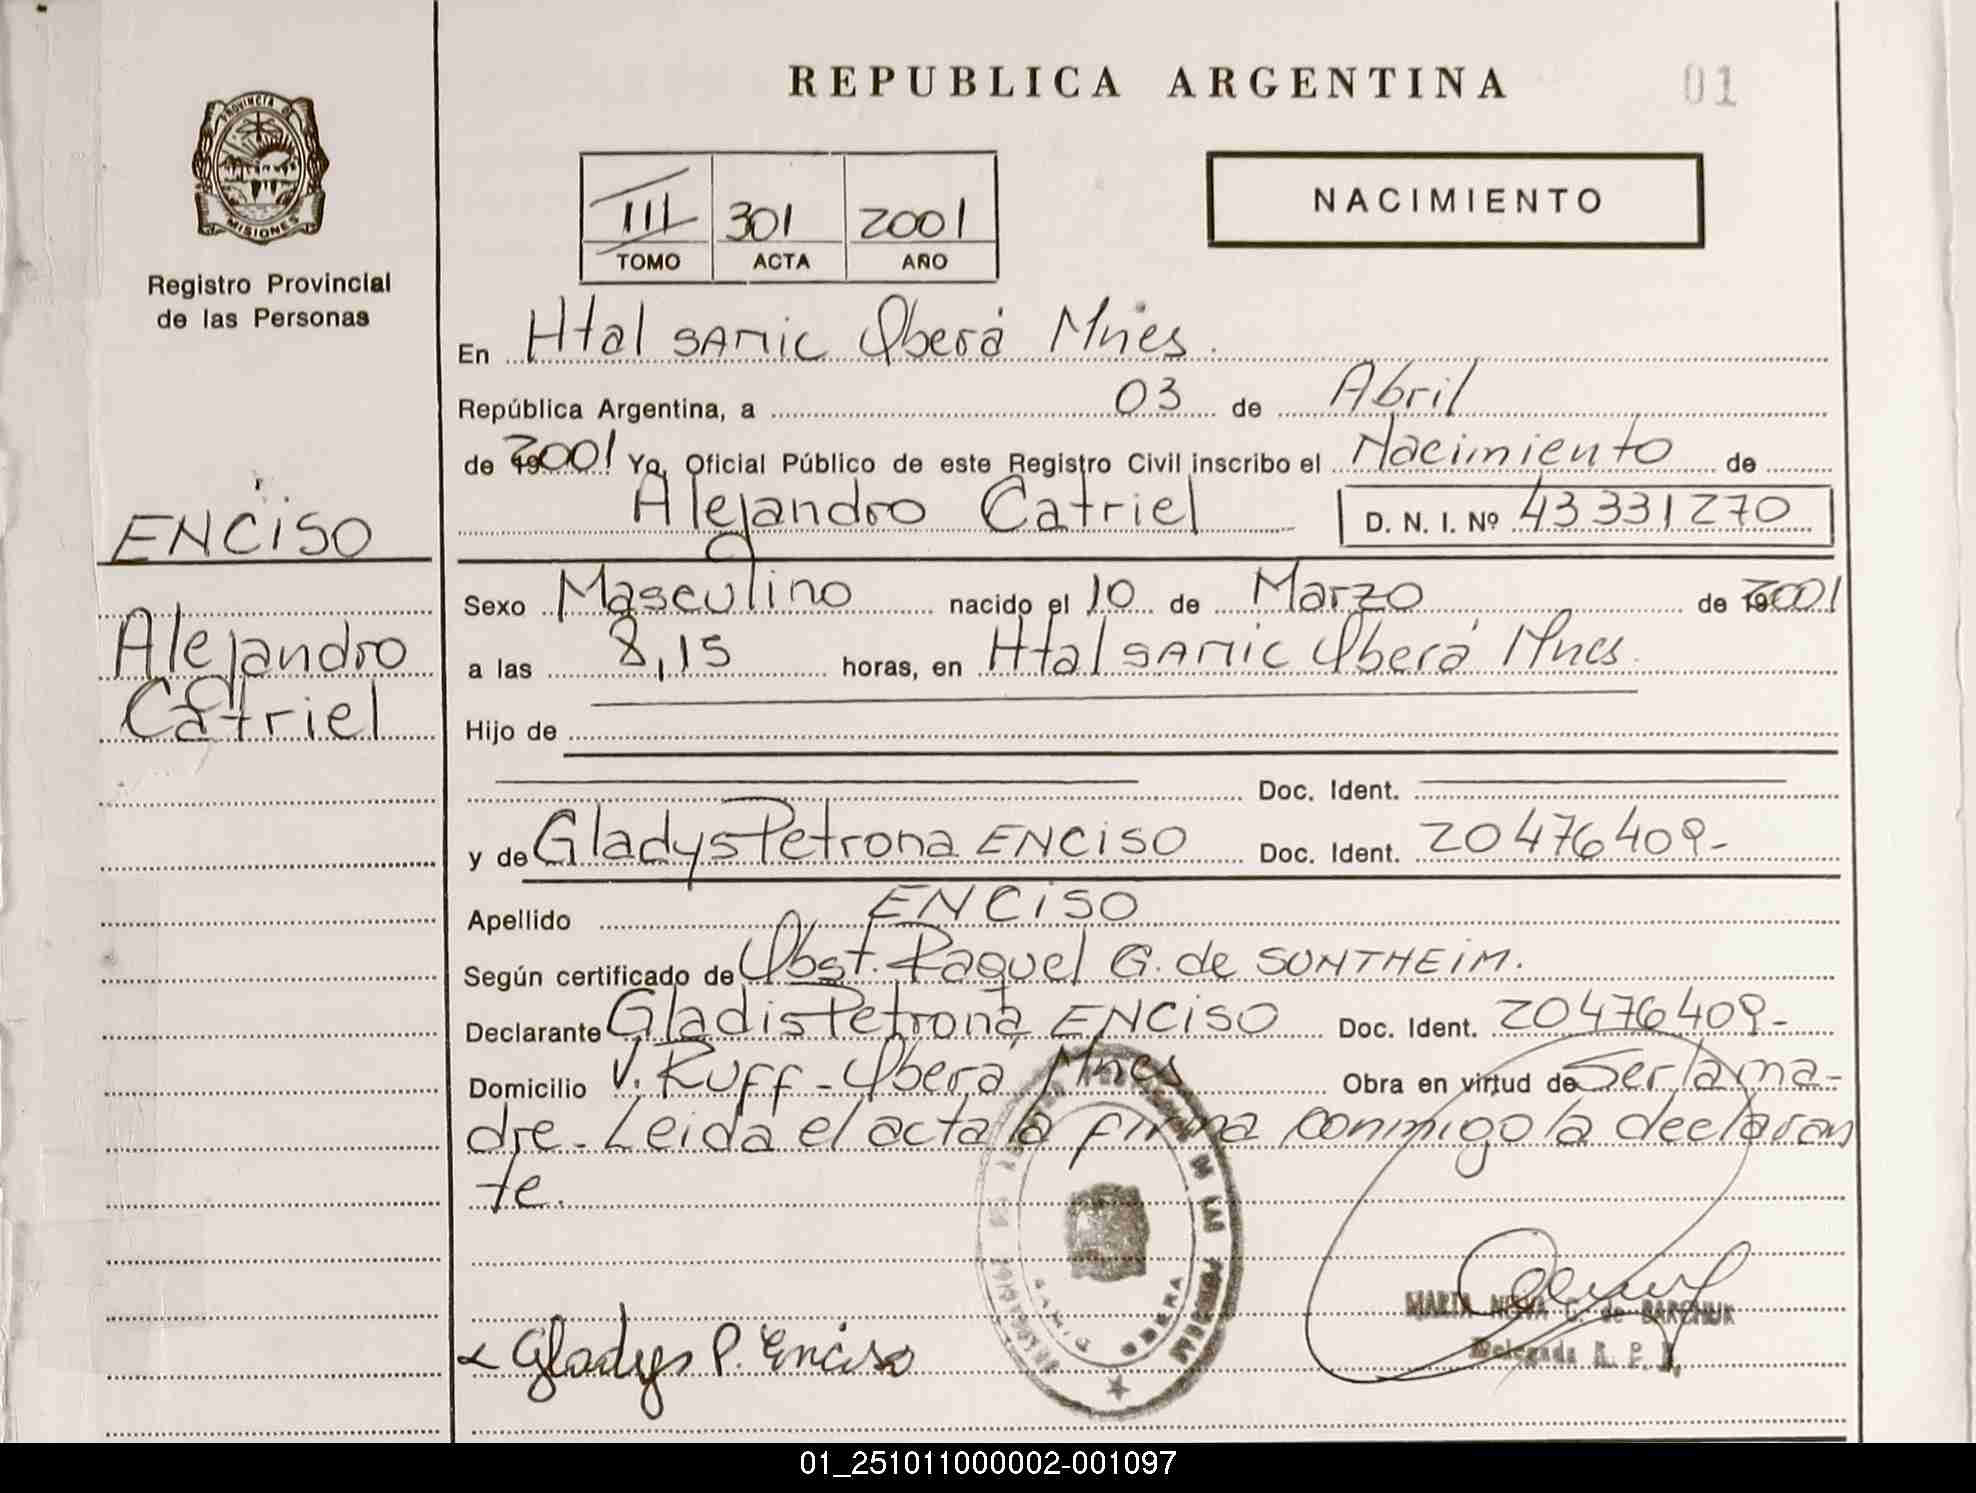 REPUBLICA ARGENTINA
01
PROVINCIA DE
MISIONES
Registro Provincial
de las Personas
III 301 2001
TOMO ACTA AÑO
NACIMIENTO
En Htal SAMIC Oberá Mnes.
República Argentina, a 03 de Abril
de 2001 Yo, Oficial Público de este Registro Civil inscribo el Nacimiento de
Alejandro Catriel D. N. I. Nº 43331270
ENCISO
Alejandro
Catriel
Sexo Masculino nacido el 10 de Marzo de 2001
a las 8,15 horas, en Htal SAMIC Oberá Mnes.
Hijo de
Doc. Ident.
y de Gladys Petrona ENCISO Doc. Ident. 20476409-
Apellido ENCISO
Según certificado de Obst. Raquel G. de SONTHEIM.
Declarante Gladis Petrona ENCISO Doc. Ident. 20476409-
Domicilio V. Ruff - Oberá Mnes Obra en virtud de Ser la ma-
dre - Leida el acta la firma conmigo la declaran
te.
DE LAS PERSONAS
SAMIC OBERA
MARTA C. de BARCHUK
Delegada R. P. P.
Gladys P. Enciso
01_251011000002-001097